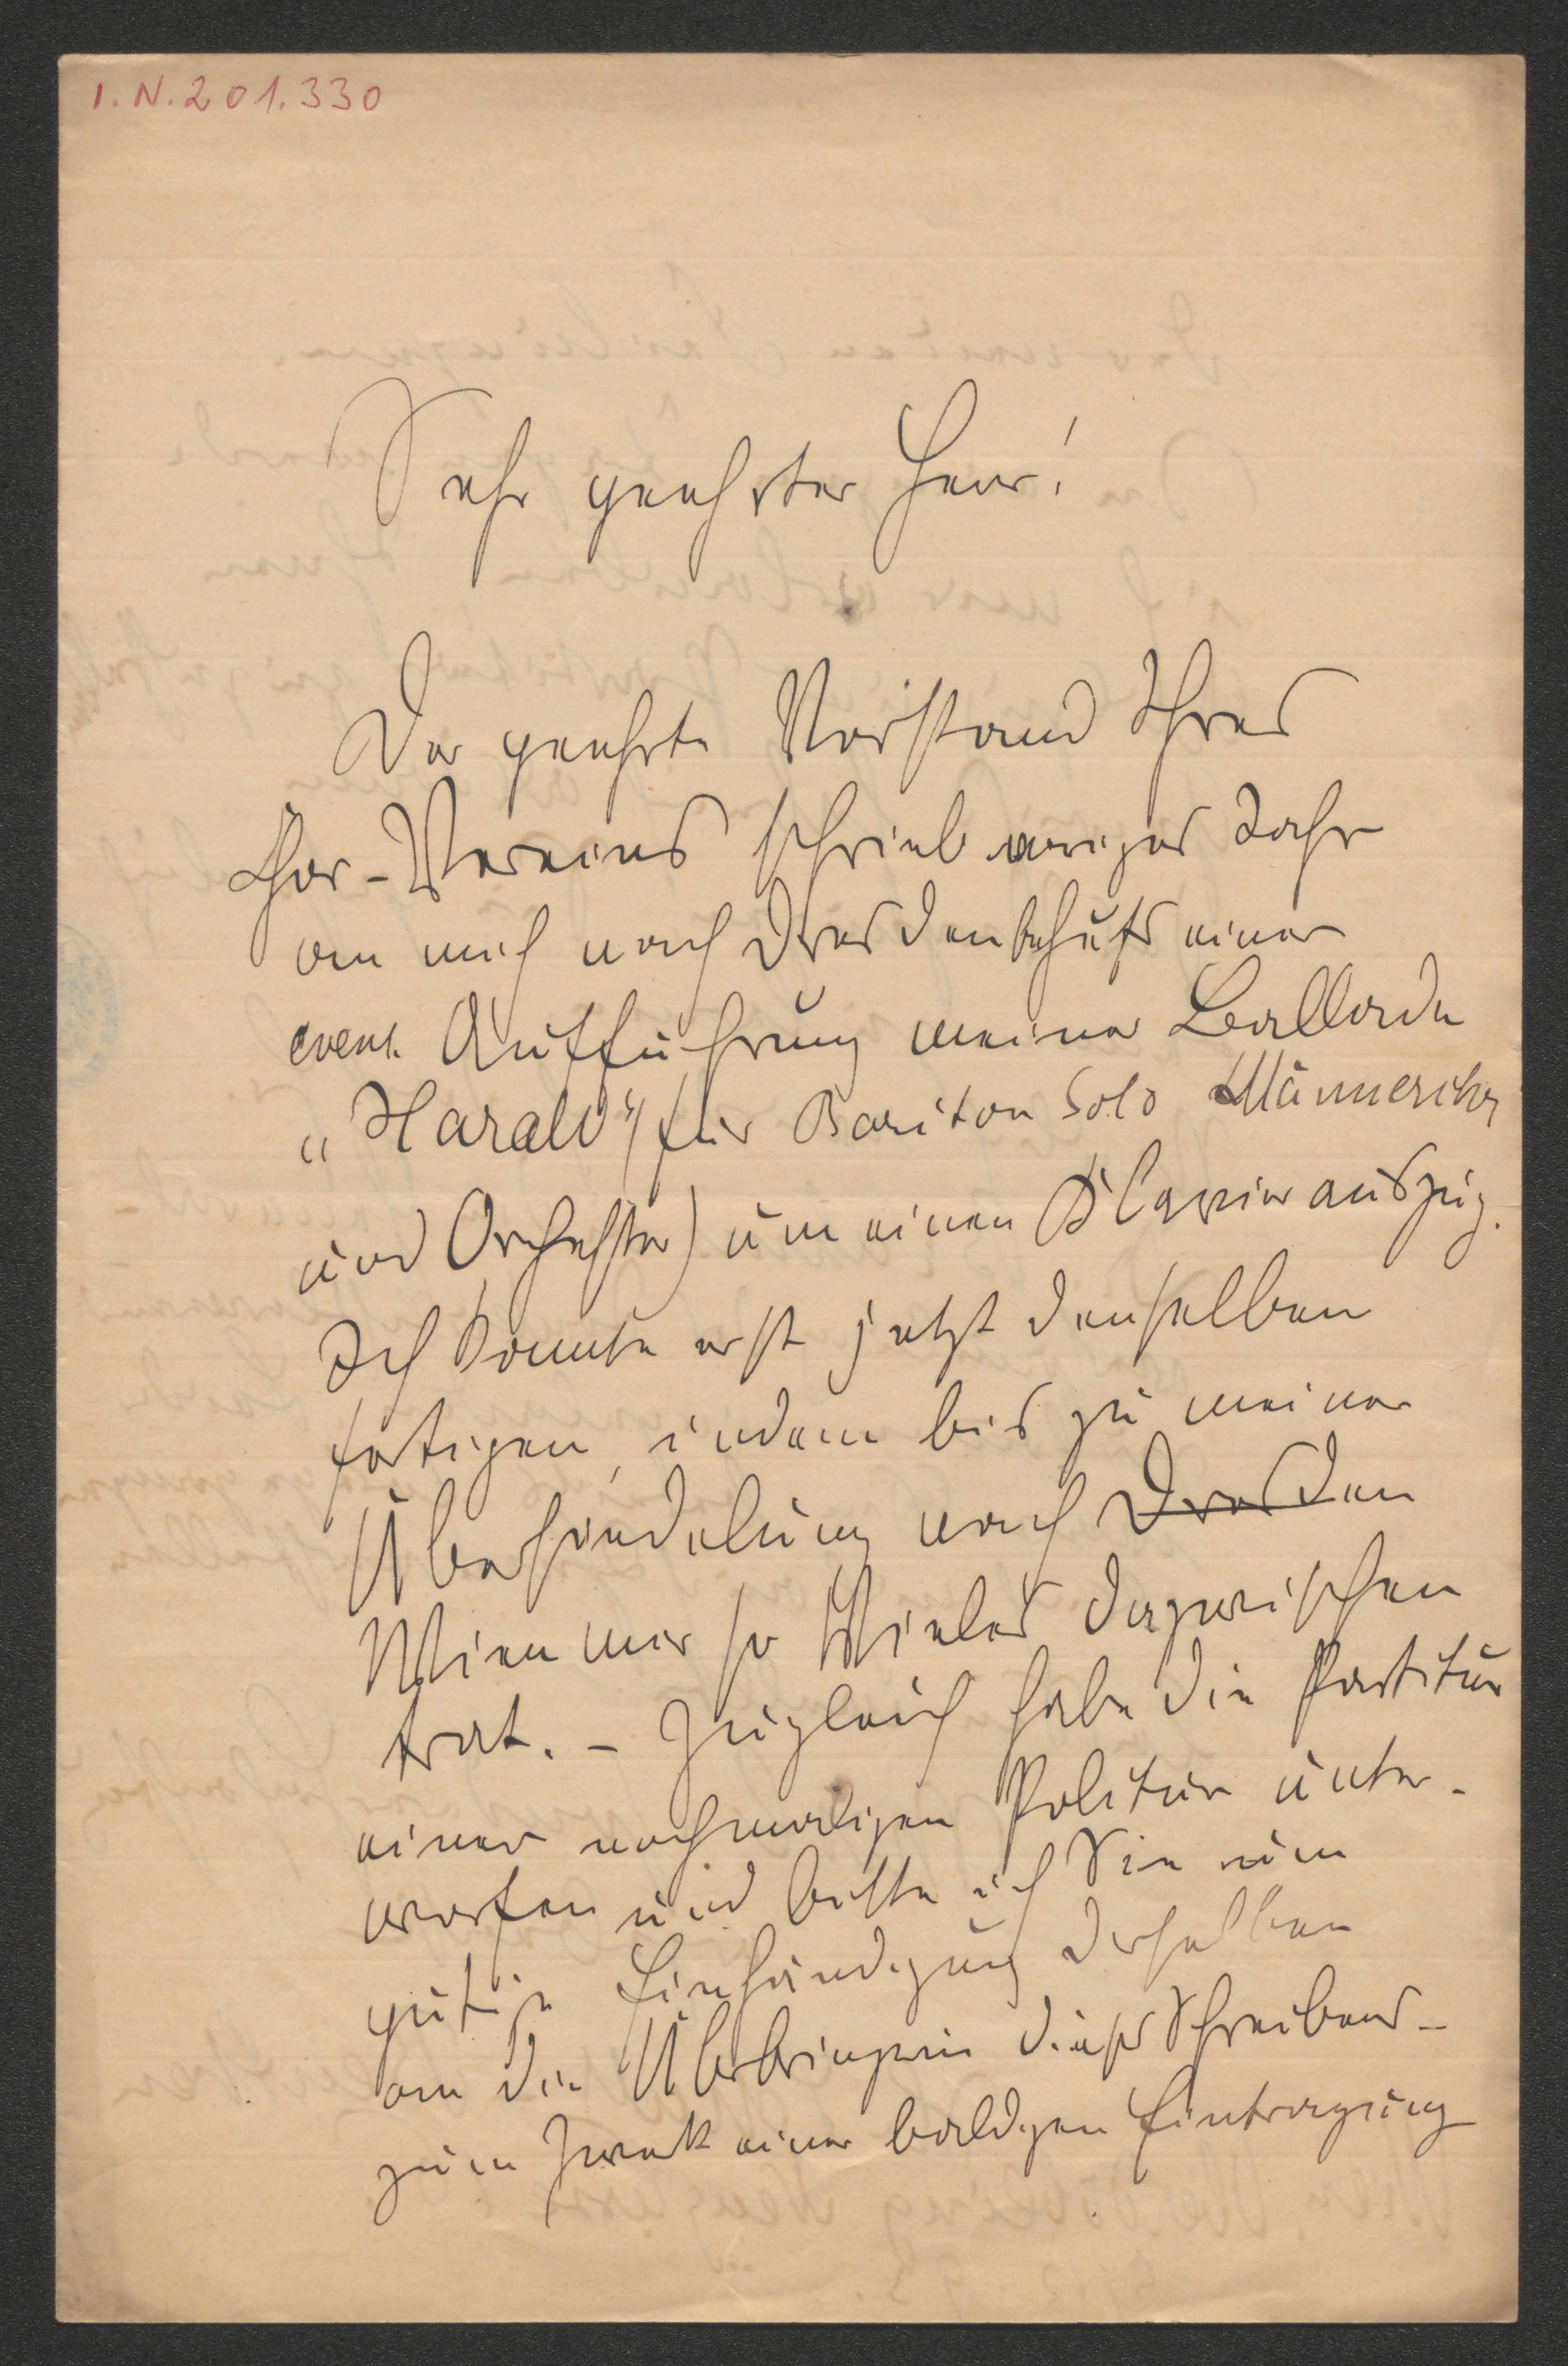 I. N. 201.330
Sehr geehrter Herr!
Der geehrte Vorstand Ihres
Chor-Vereines schrieb voriges Jahr
an mich nach Dresden behufs einer
event. Aufführung meiner Ballade
„Harald" (für Bariton Solo Männerchor
und Orchester) um einen Klavierauszug.
Ich konnte erst jetzt denselben
fertigen, indem bis zu meiner
Übersiedelung nach Dresden
Wien mir so Vieles dazwischen
trat. – Zugleich habe die Partitur
einer nochmaligen Politur unter-
worfen und bitte ich Sie um
gütige Einhändigung derselben
an die Überbringerin dieses Schreibens –
zum Zweck einer baldigen Eintragung